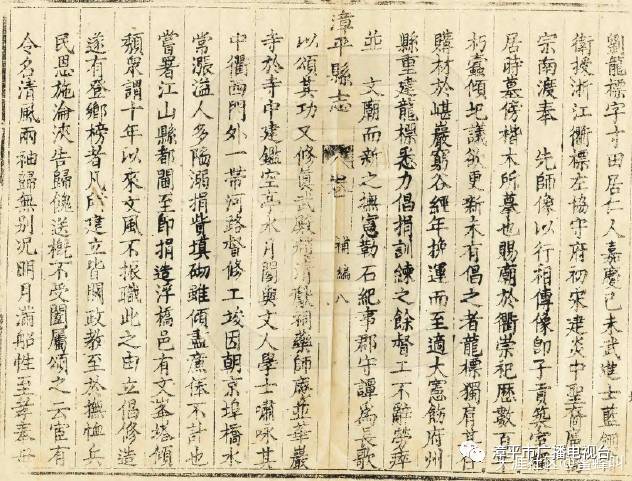 劉龍標字寸田居仁人嘉慶己未武進士藍翎
衛授浙江衢標左協守府初宋建炎中聖裔
宗南渡奉　先師像以行相傳像即子貢築室
居時墓傍楷木所摹也賜廟於衢崇祀歷數百
朽蠹傾圮議欲更新未有倡之者龍標獨肩其任
購材於嵁巖窮谷經年挽運而至適大憲飭府州
縣重建龍標悉力倡捐訓練之餘督工不辭勞瘁
並　文廟而新之撫憲勒石紀事郡守譚為長歌
漳平縣志　補編　八
以頌其功又修真武殿藥師廠並華嚴
寺於寺中建鑑空亭水月閣與文人學士嘯咏其
中衢西門外一帶河路督修工竣因朝京埠橋水
常漲溢人多陷溺捐貲填砌雖傾盡廉俸不計也
嘗署江山縣都閫至即捐造浮橋邑有文峯塔傾
頹眾謂十年以來文風不振職此之由立倡修造
遂有登鄉榜者凡所建立皆關政教至於撫恤兵
民恩施淪浹告歸餽送槪不受闔屬頌之云宦有
令名清風兩袖歸無別況明月滿船性至孝奉母
漳平市广播电视台